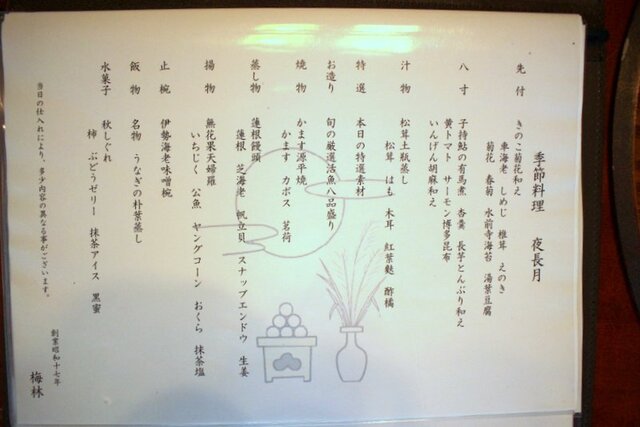 季節料理　夜長月
先付　きのこ菊花和え
車海老　しめじ　椎茸　えのき
菊花　春菊　水前寺海苔　湯葉豆腐
八寸　子持鮎の有馬煮　杏羹　長芋とんぶり和え
黄トマト　サーモン博多昆布
いんげん胡麻和え
汁物　松茸土瓶蒸し
松茸　はも　木耳　紅葉麩　酢橘
特選　本日の特選素材
お造り　旬の厳選活魚八品盛り
焼物　かます源平焼
かます　カボス　茗荷
蒸し物　蓮根饅頭
蓮根　芝海老　帆立貝　スナップエンドウ　生姜
揚物　無花果天婦羅
いちじく　公魚　ヤングコーン　おくら　抹茶塩
止椀　伊勢海老味噌椀
飯物　名物　うなぎの朴葉蒸し
水菓子　秋しぐれ
柿　ぶどうゼリー　抹茶アイス　黒蜜
当日の仕入れにより、多少内容の異なる事がございます。
創業昭和十七年
梅林